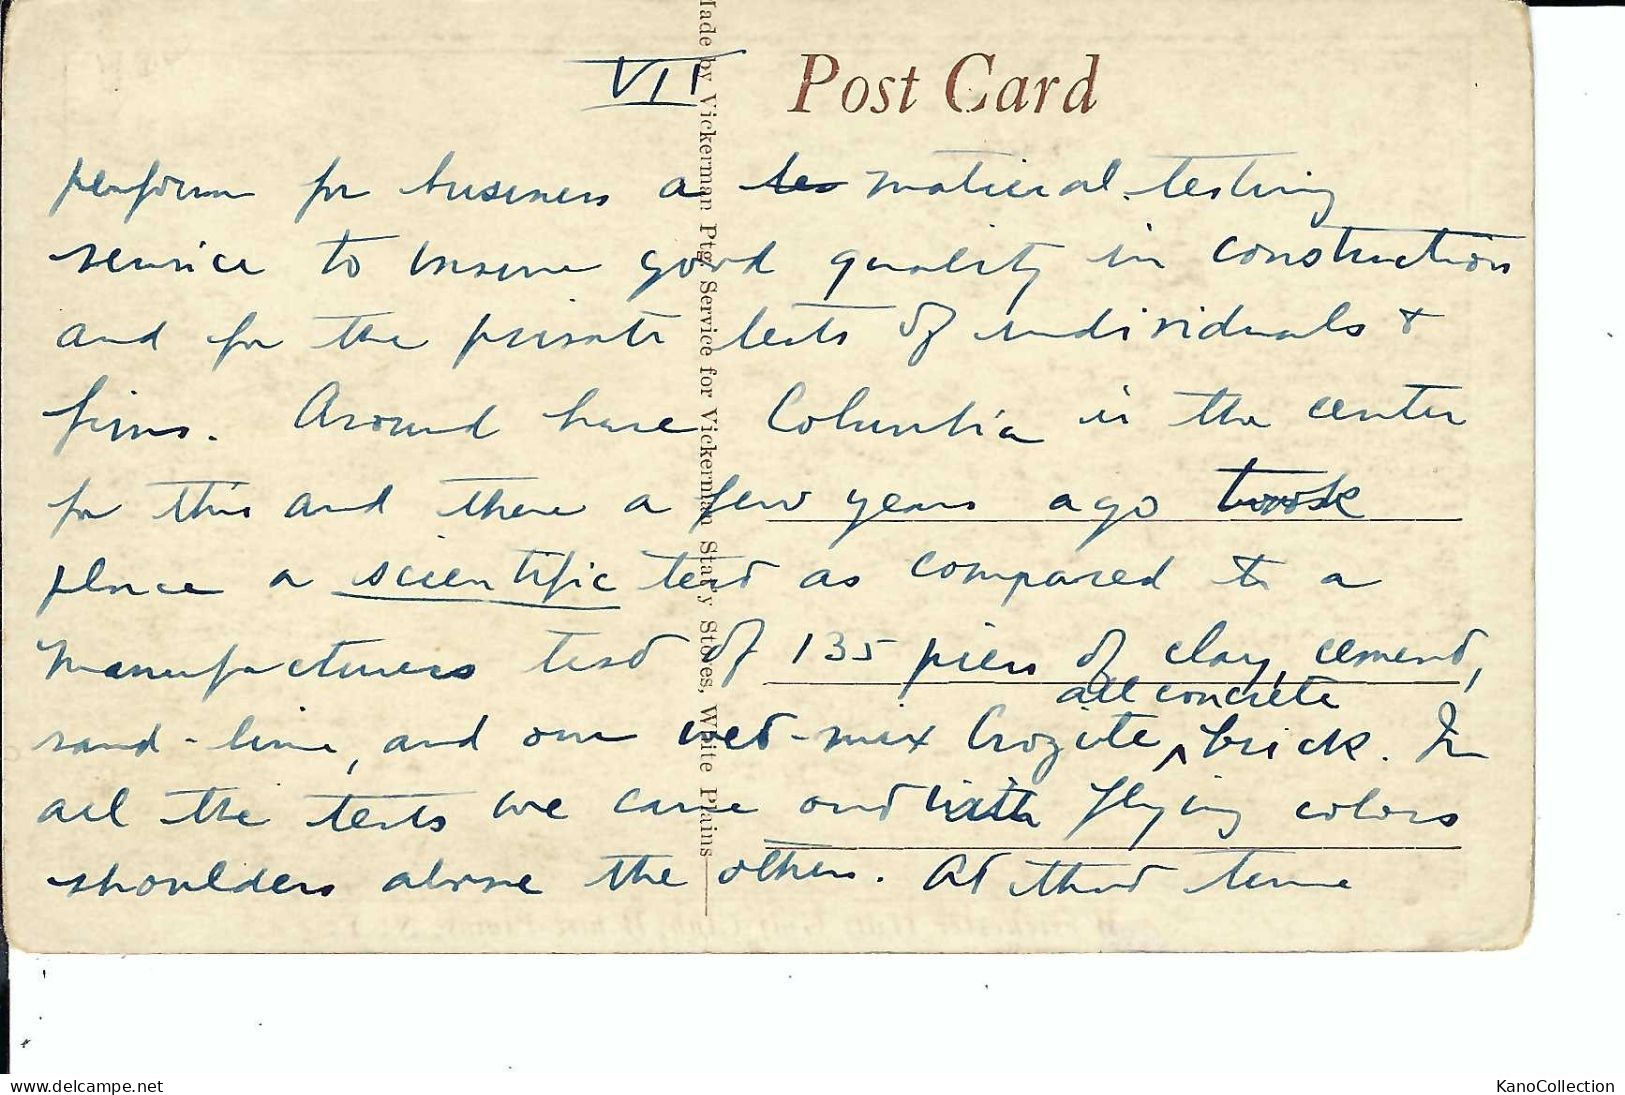 VII
Post Card
Made by Vickerman Ptg. Service for Vickerman Stat'y Stores, White Plains
perform for business a tes material testing
service to insure good quality in construction
and for the private tests of individuals +
firms. Around here Columbia is the center
for this and there a few years ago took
place a scientific test as compared to a
manufacturers test of 135 piers of clay, cement,
all concrete
sand-lime, and our wet-mix Crozite ^ brick. In
all the tests we came out with flying colors
shoulders above the others. At that time
www.delcampe.net
KanoCollection